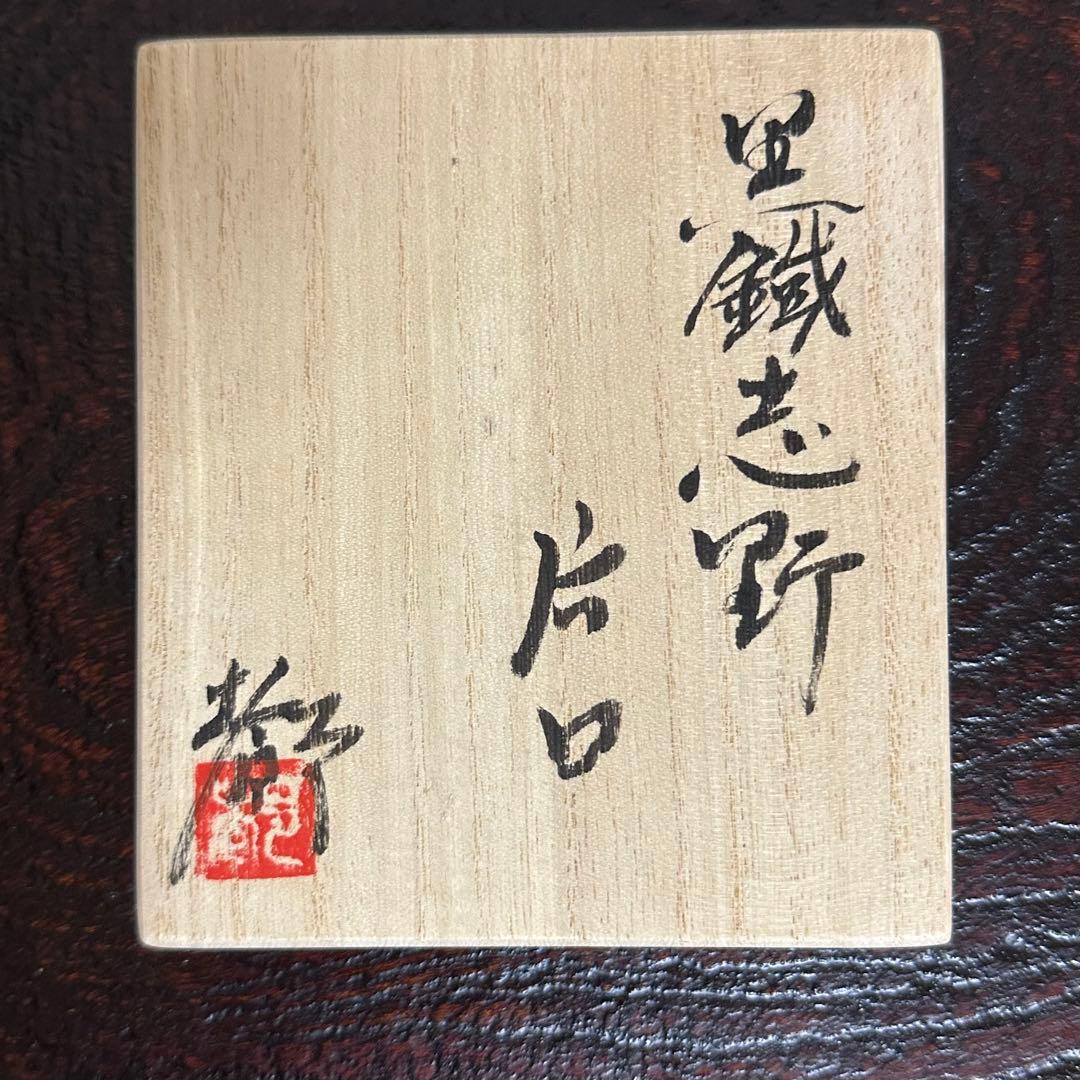 黒鐵志野
片口